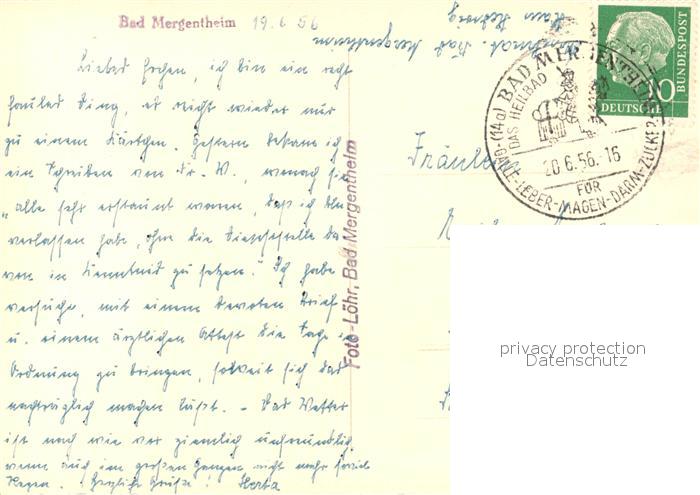 Bad Mergentheim 19.6.56
Liebes , ich bin ein recht
faules Ding, es reicht wieder nur
zu einem Kärtchen. Gestern bekam ich
ein Schreiben von Dr. W., wonach sie
"alle sehr erstaunt waren, daß ich
verlassen habe, ohne die Dienststelle da-
von in Kenntnis zu setzen." Ich habe
versucht, mit einem devoten Brief
u. einem ärztlichen Attest die Sache in
Ordnung zu bringen, soweit sich das
nachträglich machen läßt. – Das Wetter
ist nach wie vor ziemlich unfreundlich,
wenn auch im großen Ganzen nicht mehr soviel
Regen. Herzliche Grüße! Herta
Bad Mergentheim
Haus Hedwig
Foto-Löhr, Bad Mergentheim
Fräulein
(14a) BAD MERGENTHEIM
DAS HEILBAD
20.6.56.-16
FÜR
GALLE-LEBER-MAGEN-DARM-ZUCKER
10
DEUTSCHE
BUNDESPOST
privacy protection
Datenschutz